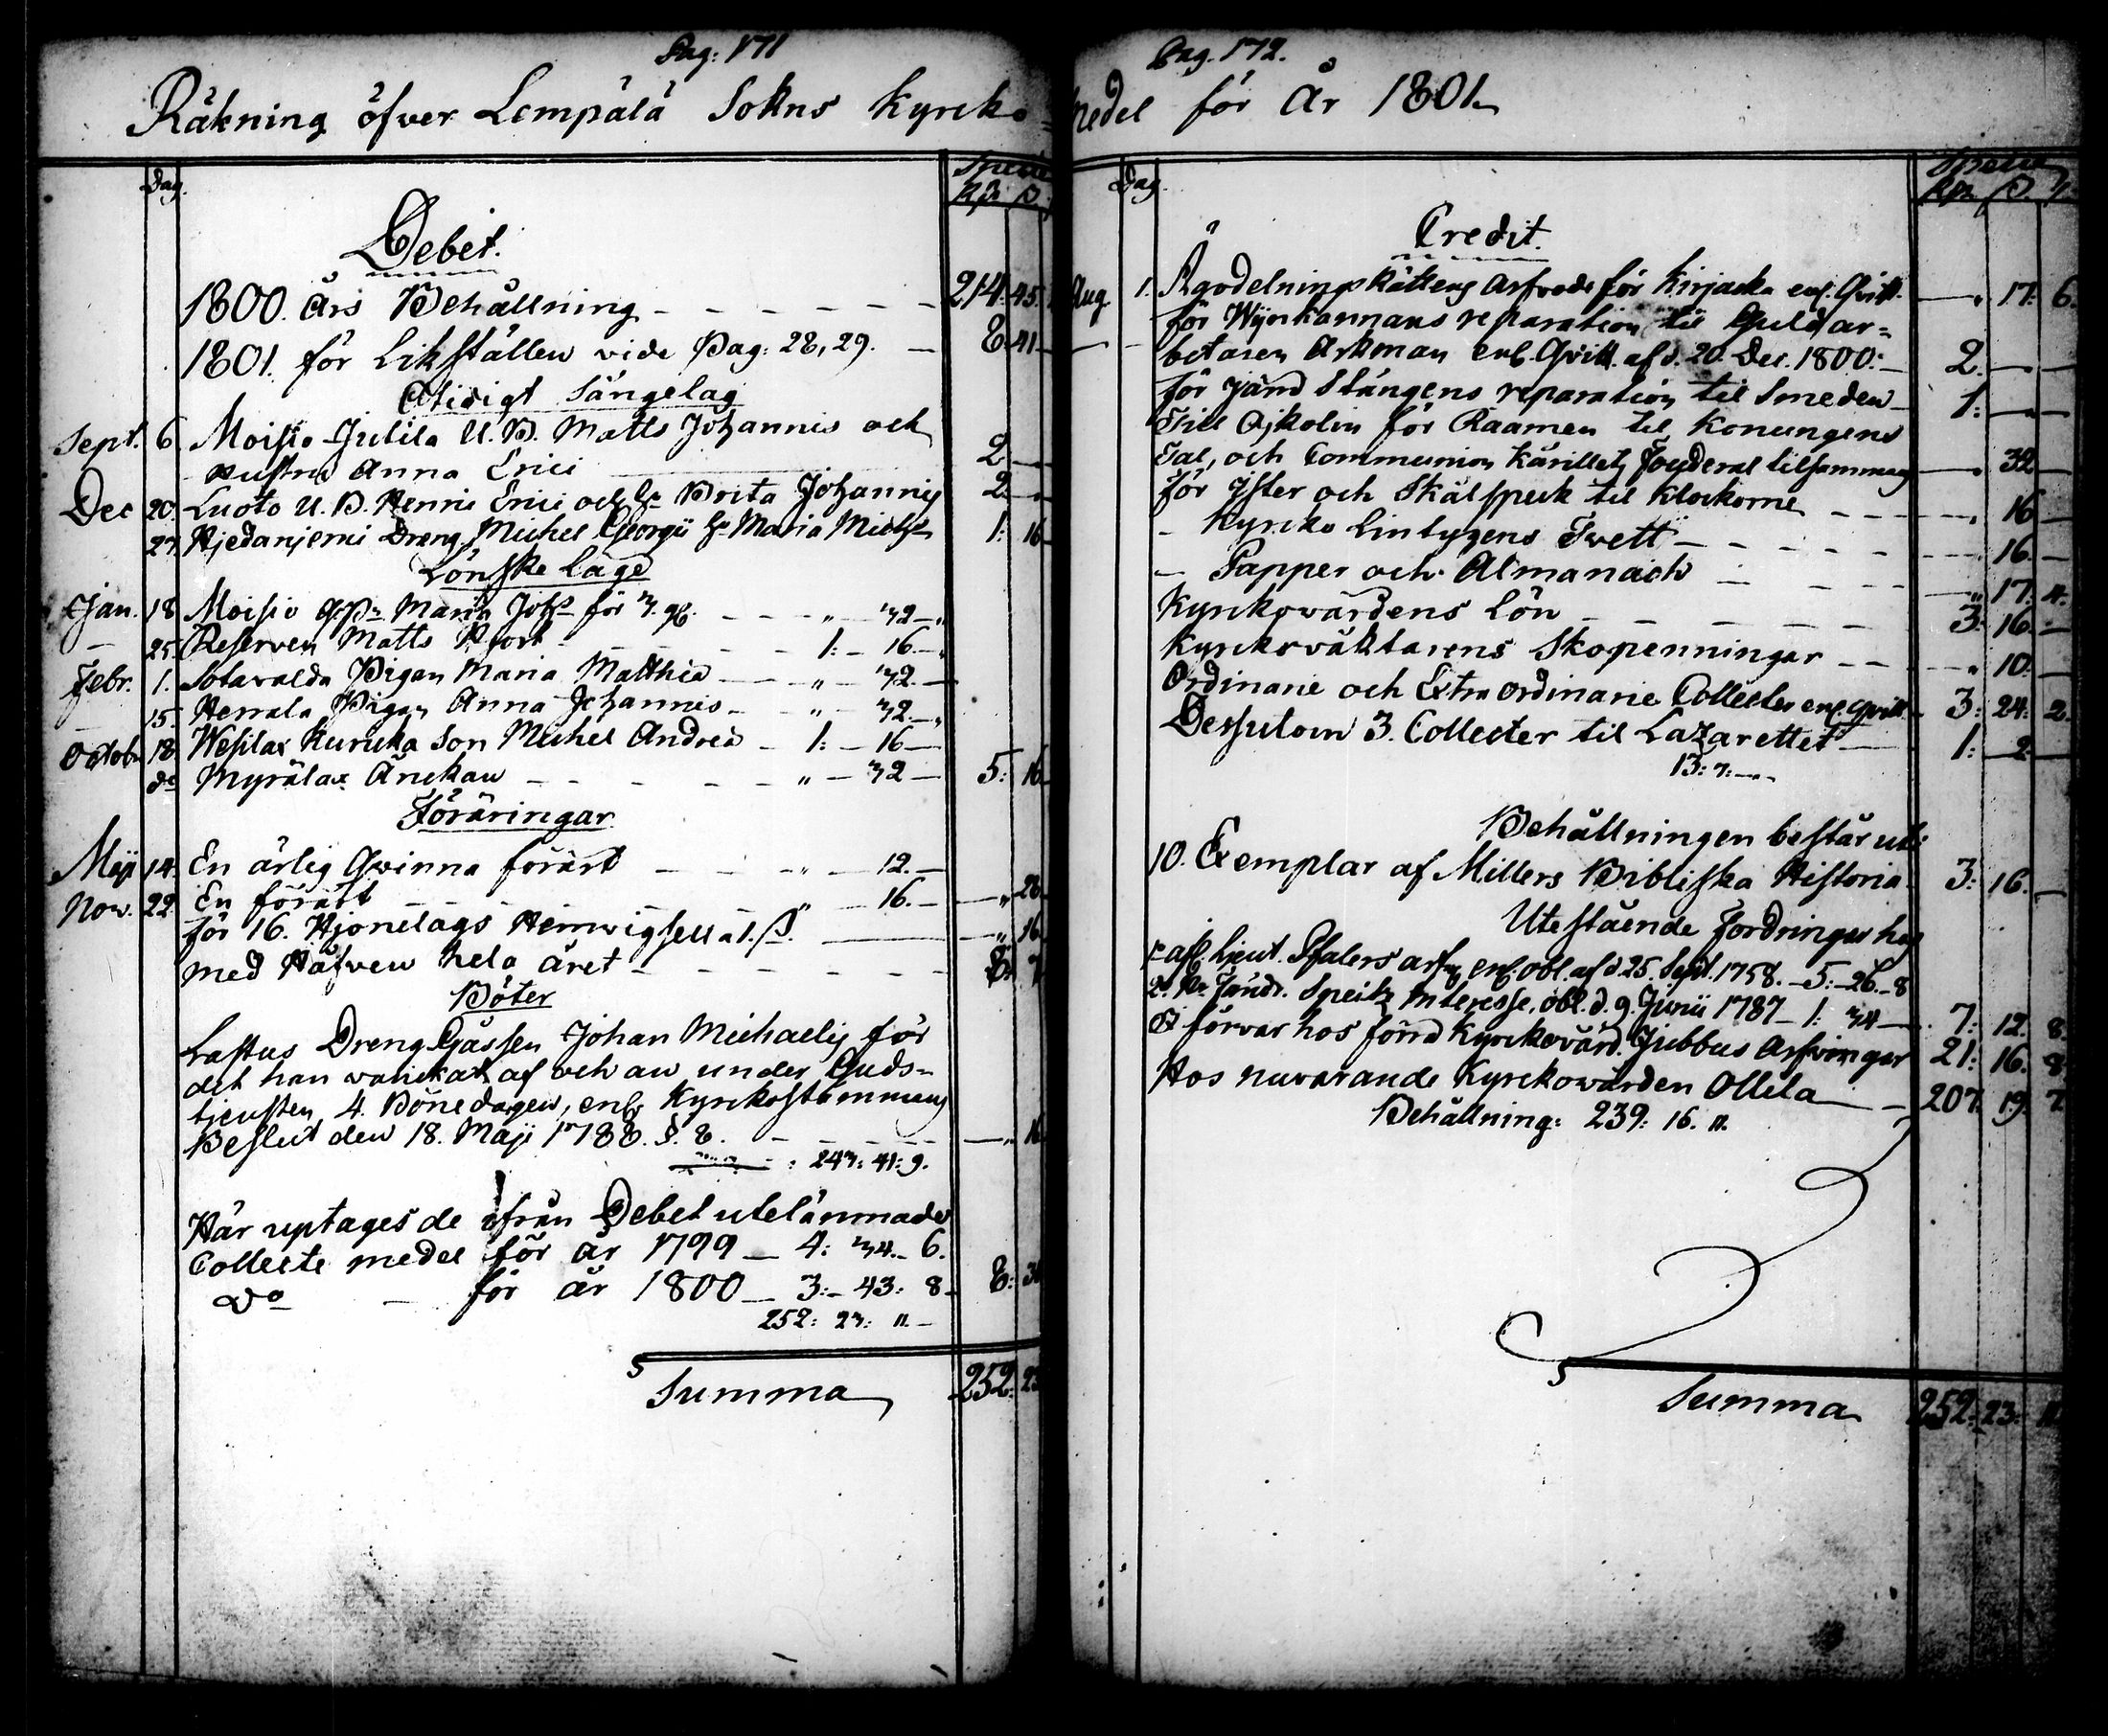 Pag: 171
Räkning öfver Lempälä Sokns Kyrcko=
Dag. Specie
Rdr ß.
Debet.
1800. års Behållning 214: 45.
1801. för Likställen vide Pag: 28, 29. 8: 41
Otidigt Sängelag
Sept. 6. Moisio Jutila U. B. Matts Johannis och
Hustru Anna Erici 2
Dec 20. Luoto U. B. Henric Erici och H. Brita Johannis 2
27. Hjedanjemi Dreng Michel Georgii H. Maria Michs 1: 16
Lönske läge
Jan. 18. Moisio Maria Johs för 32
25. Reserven Matts 1: 16.
Febr. 1. Sotavalda Pigan Maria Matthiæ 32
15. Herrala Pigan Anna Johannis 32
Octobr 18. Wesilax Kuricka Son Michel Andreæ 1: 16
do Myrälax Änckan 32 5: 16
Föräringar
Maji 14. En ärlig Qvinna förärt 12.
Nov. 22. En förärt 16. 28
för 16. Hjonelags Hemvigsell a 1. ß. 16
med Håfven hela året 8: 7
Böter
Lastus Dreng Gåssen Johan Michaelis för
det han vanckat af och an under Guds=
tjensten, 4. Bönedagen, enl. Kyrkostämmans
Beslut den 18. Maji 1788. §. 8. 16
243: 41: 9.
Här uptages de ifrån Debet utelämnade
Collecte medel för år 1799 4: 34. 6.
do för år 1800 3: 43: 8 8: 30
252: 23: 11.
Summa 252: 23
Pag. 172.
medel för År 1801.
Dag. Specie
Rdr ß. r.
Credit.
Aug. 1. Ägodelnings Rättens Arfvode för Kirjacka enl. Qvitt. 17: 6.
för Wijnkannans reparation til Guldar=
betaren Arkman enl. Qvitt. af d. 20. Dec. 1800. 2.
för Järnd Stångens reparation til Smeden 1:
Till Ojkolin för Raamen til Konungens
Tal, och Communion Kärillets Fouderal tilsammans 32
för Ister och Skälspeck til Klockorne 16
- Kyrcko Lintygens Tvett 16.
- Papper och Almanach 17: 4.
Kyrckovärdens Lön 3: 16.
Kyrckoväktarens Skopenningar 10.
Ordinarie och Extra ordinarie Collecter enl. Qvitt. 3: 24: 2.
Dessutom 3. Collecter til Lazarettet 1: 2
13: 7:
Behållningen består uti
10. Exemplar af Millers Bibliska Historia 3: 16.
Utestående Fordringar hos
Lieut. Pfalers arfv. enl. obl. af d 25. Sept. 1758. 5: 26. 8
Speitz Interesse, obl. d. 9. Junii 1787 1: 34 7: 12. 8.
I förvar hos förra Kyrckovärd. Jubbus Arfvingar 21: 16. 8
Hos nuvarande Kyrckovärden Ollila 207: 19. 7
Behållning: 239: 16. 11.
Summa 252: 23: 11